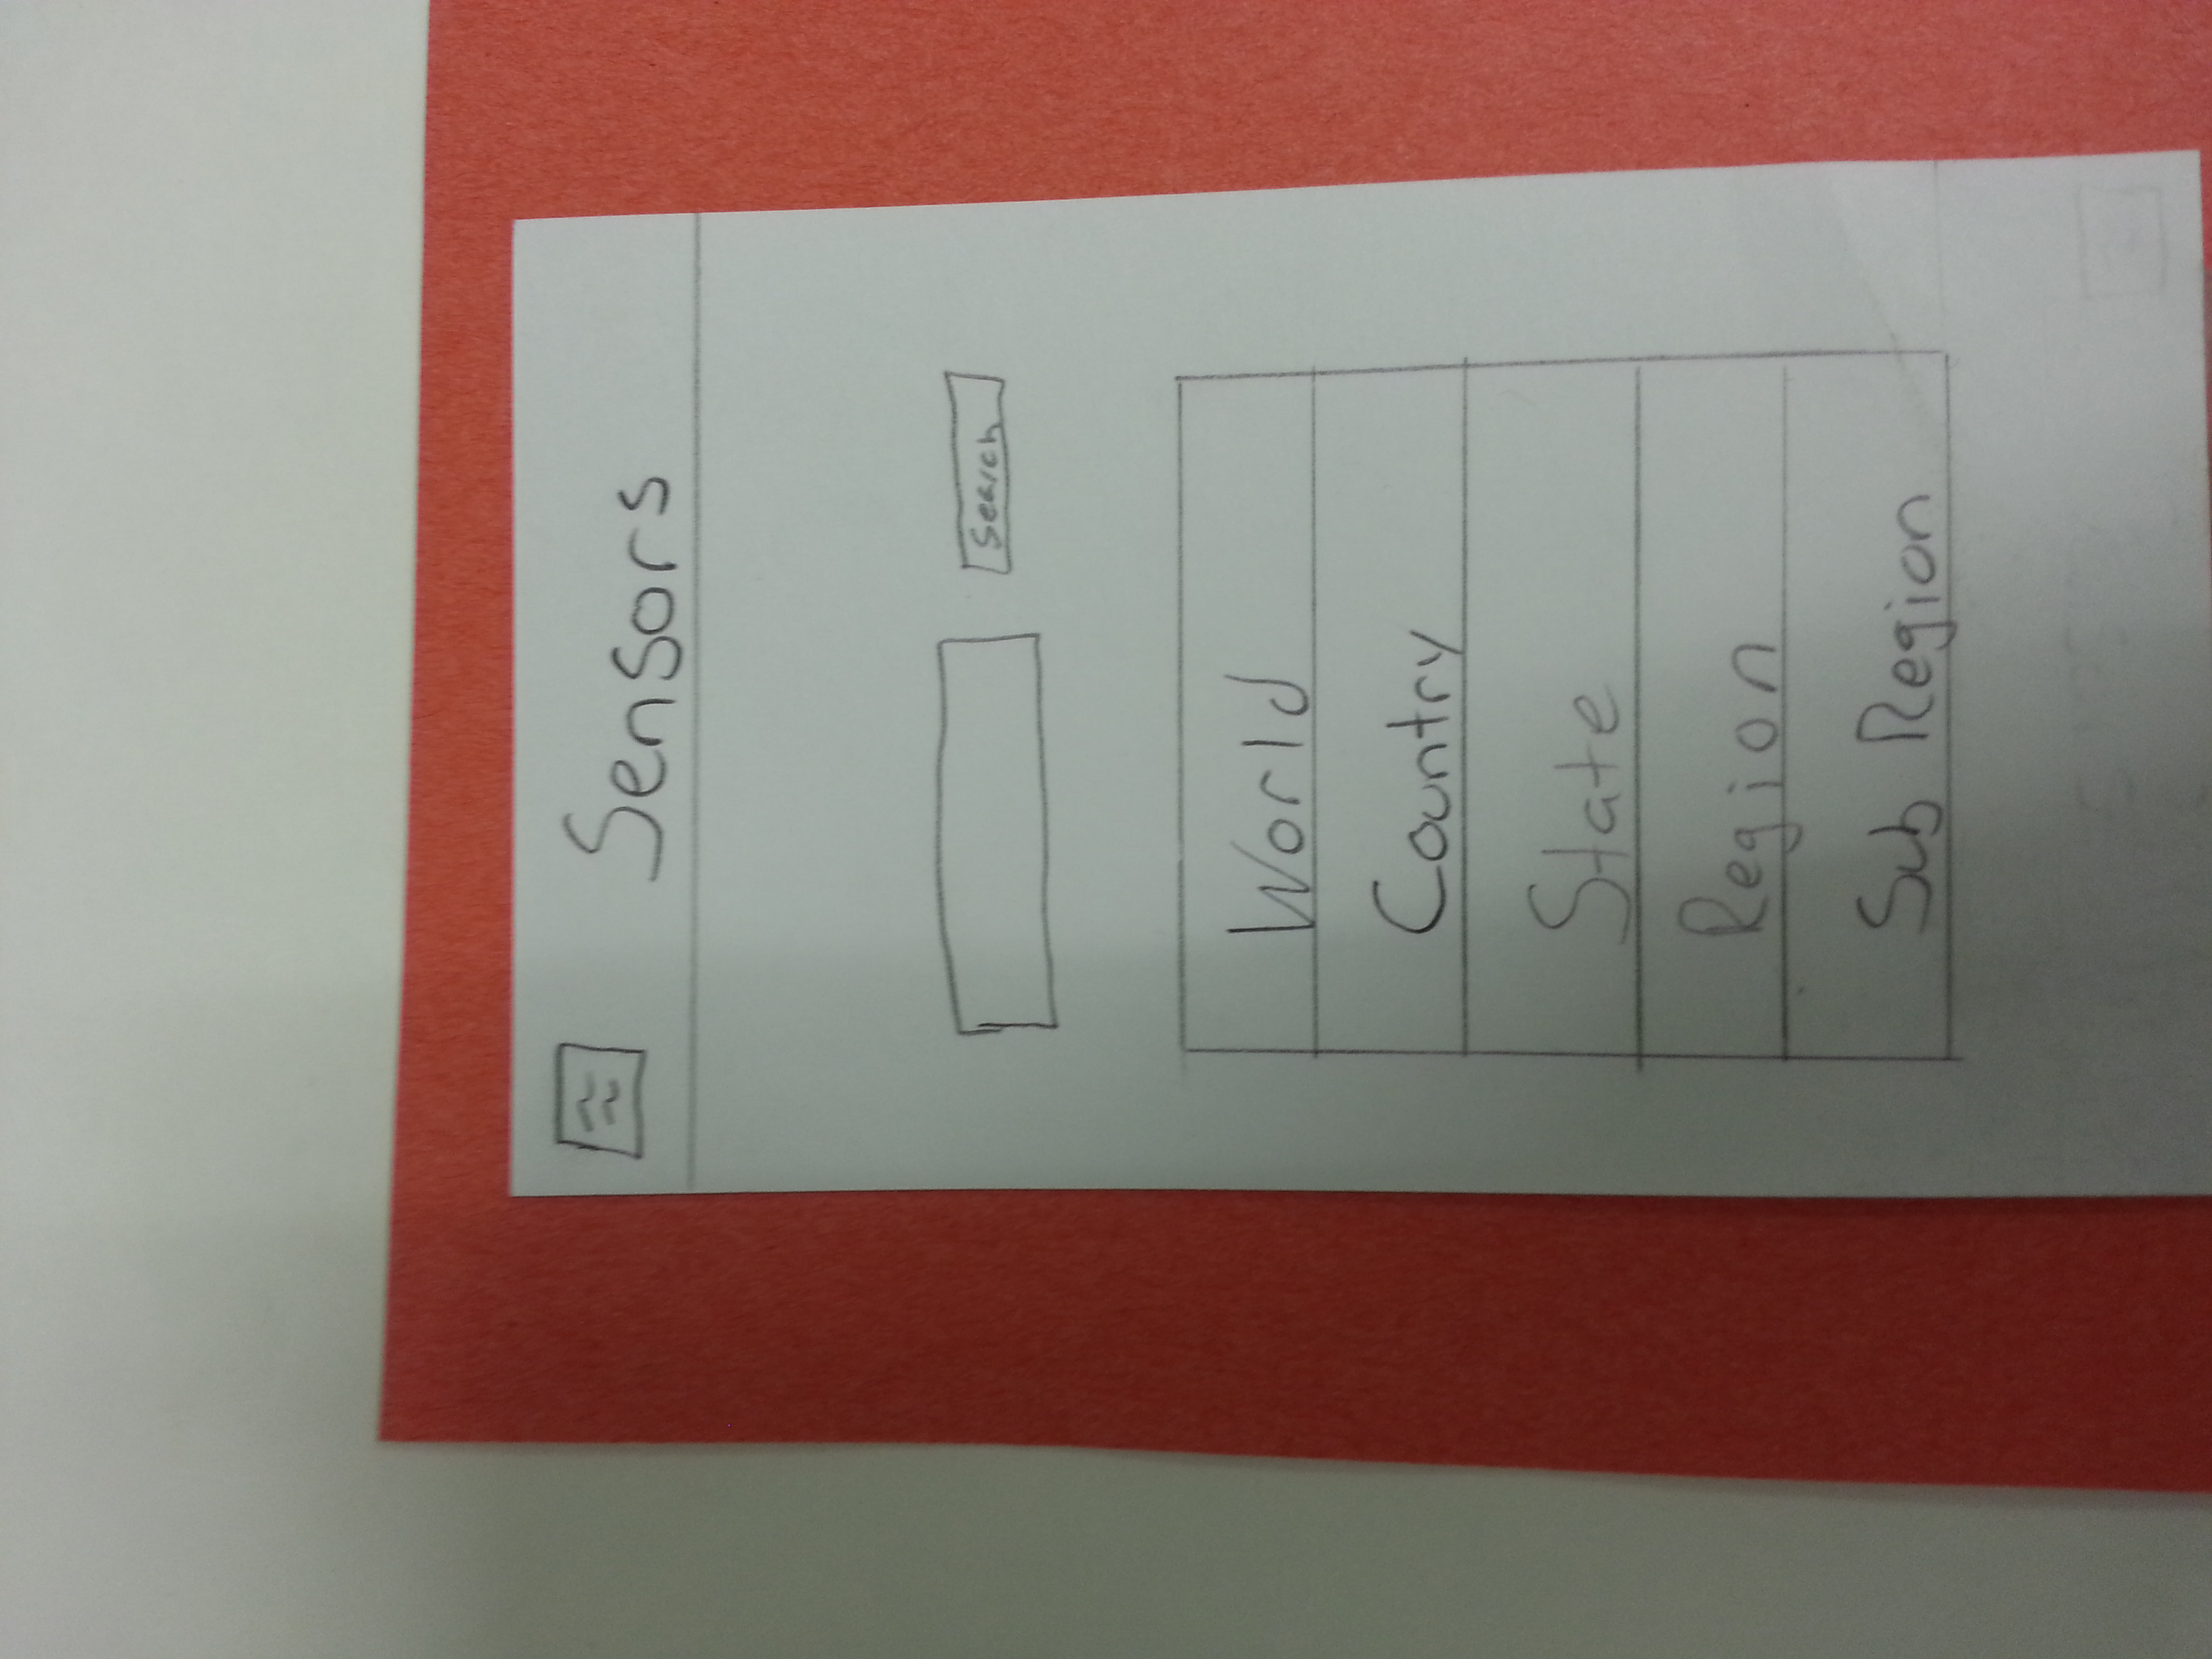 Sensors
Search
World
Country
State
Region
Sub Region